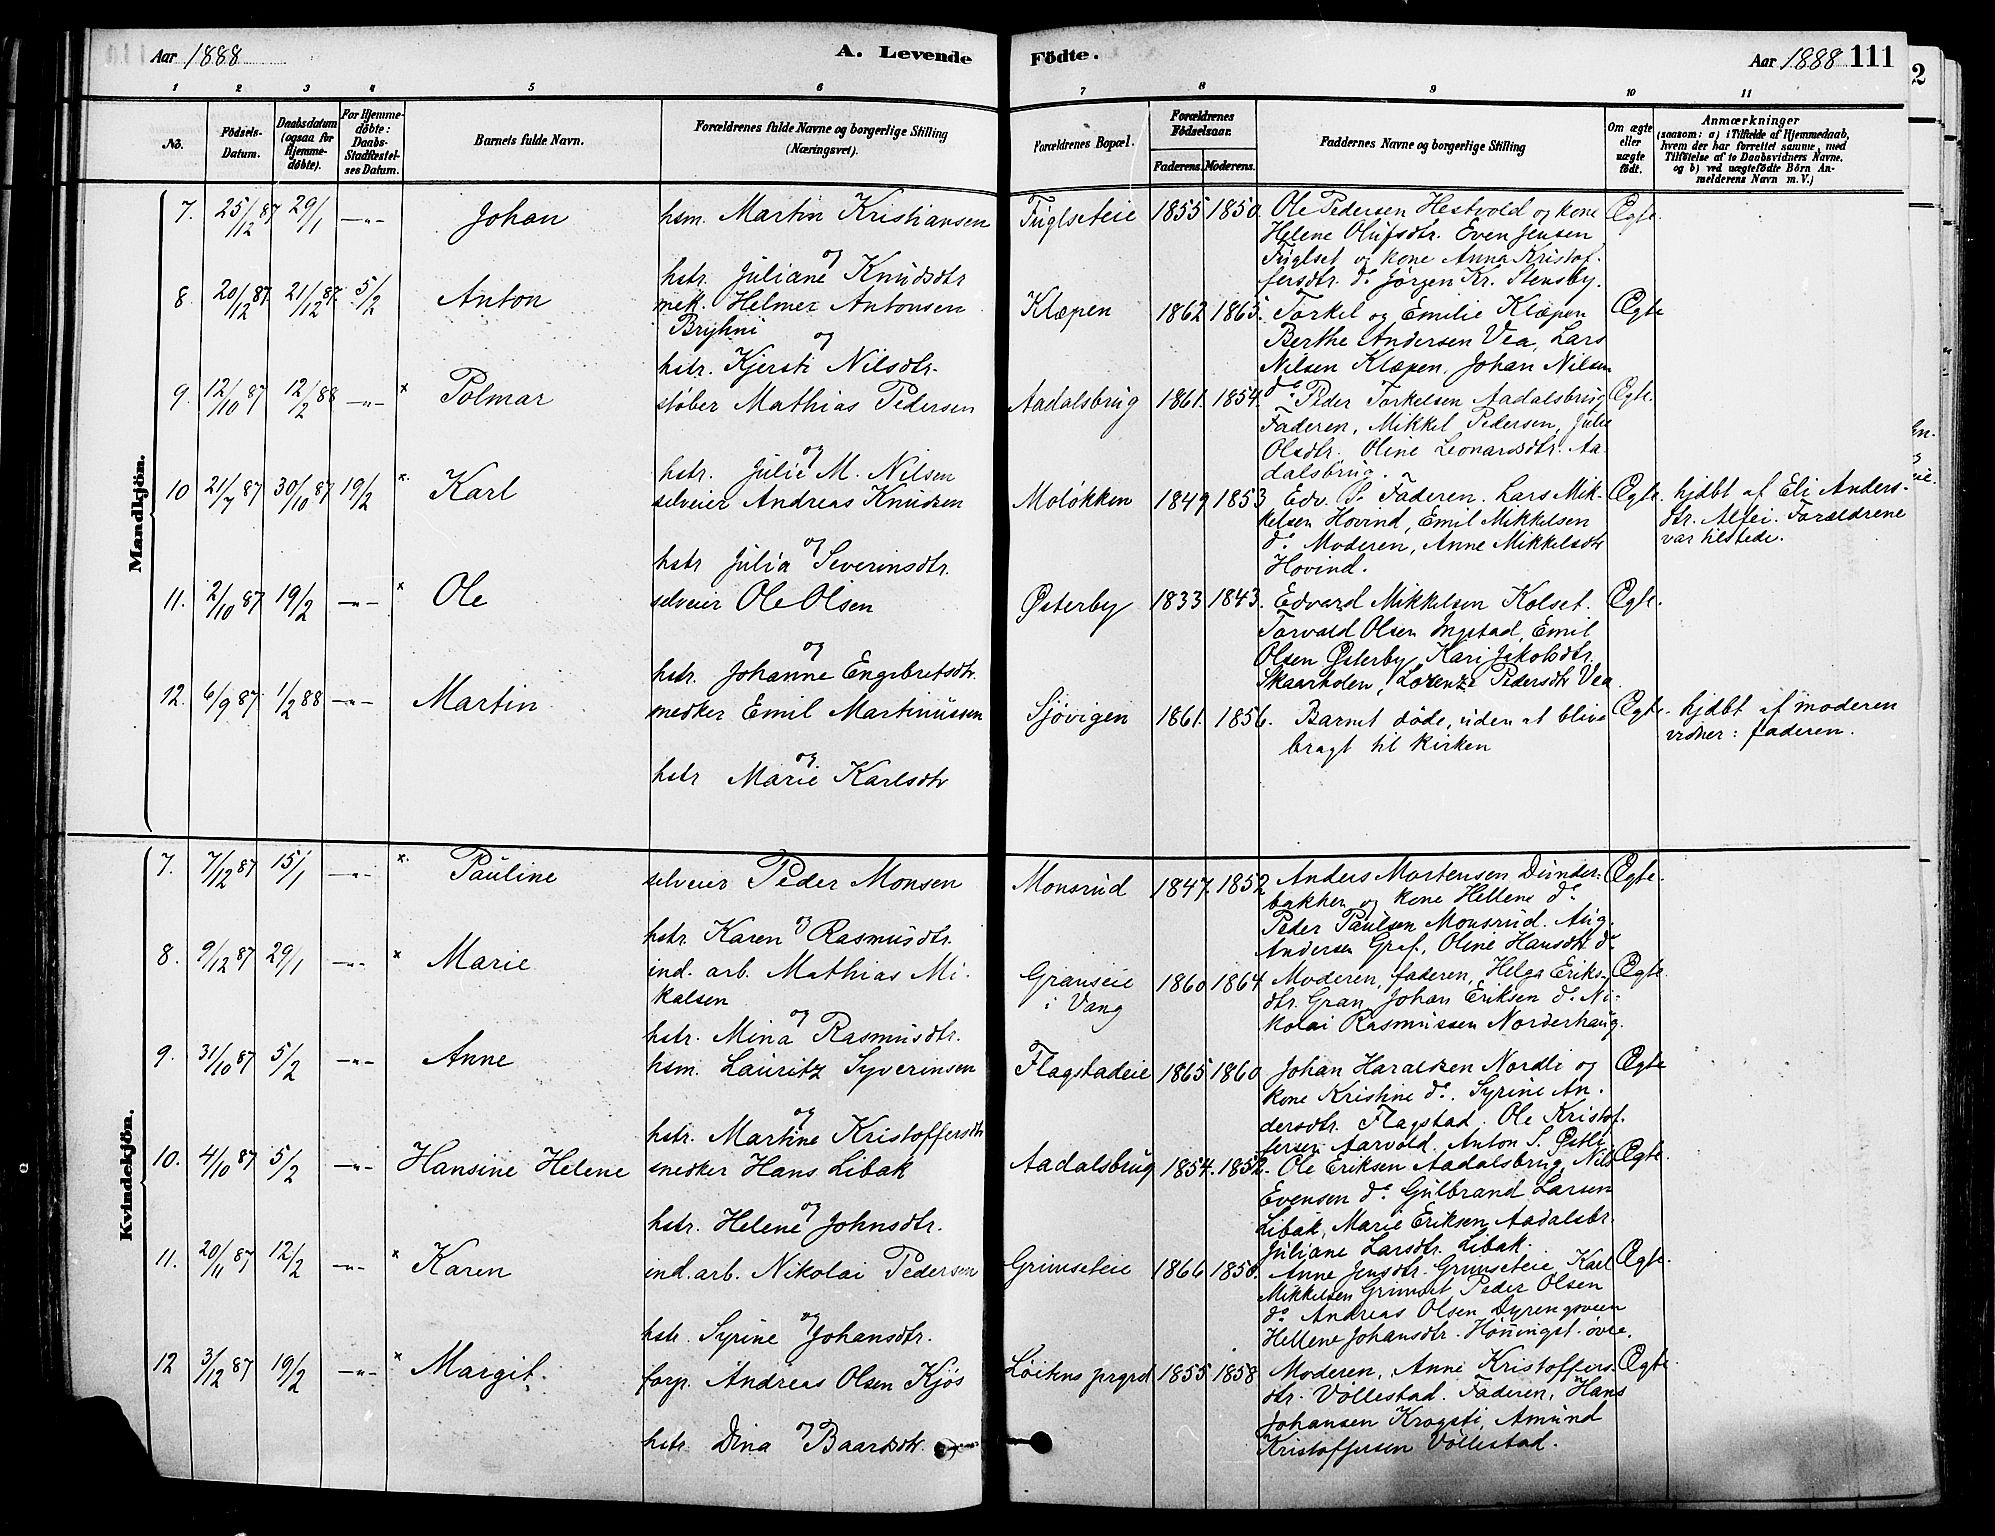 Aar 1888 A. Levende Fødte. Aar 1888 111
1 2 3 4 5 6 7 8 9 10 11
No. Fødsels-Datum. Daabsdatum (ogsaa for Hjemme-døbte). For Hjemme-døbte: Daabs-Stadfæstelses Datum. Barnets fulde Navn. Forældrenes fulde Navne og borgerlige Stilling (Næringsvei). Forældrenes Bopæl. Forældrenes Fødselsaar. Faderens. Moderens. Faddernes Navne og borgerlige Stilling Om ægte eller uægte født. Anmærkninger (saasom: a) i Tilfælde af Hjemmedaab, hvem der har forrettet samme, med Tilføielse af to Daabsvidners Navne, og b) ved uægtefødte Børn Anmelderens Navn m.V.)
Mandkjön.
7. 25/12 87 29/1 -"- Johan hsm. Martin Kristiansen Fuglseteie 1855 1850. Ole Pedersen Hestvold og kone Ægte.
Helene Olufsdtr. Even Jensen
og Fuglset og kone Anna Kristof-
hstr. Juliane Knudsdtr fersdtr. do Jørgen Kr. Stensby.
8. 20/12 87. 21/12 87. 5/2 Anton mek. Helmer Antonsen Klæpen 1862 1865. Torkel og Emilie Klæpen Ægte
Bryhni og Berthe Andersen Vea, Lars
hstr. Kjersti Nilsdtr. Nilsen Klæpen, Johan Nilsen
9. 12/10 87 12/2 88 -"- x Polmar støber Mathias Pedersen Aadalsbrug 1861. 1854. do Peder Torkelsen Aadalsbrug Ægte.
Faderen, Mikkel Pedersen, Julie
og Olsdtr. Oline Leonardsdtr. Aa-
hstr. Julie M. Nilsen dalsbrug.
10 21/7 87 30/10 87 19/2 x. Karl selveier Andreas Knudsen Moløkken 1849 1853 Edv. S. Faderen. Lars Mik- Ægte. hjdbt af Eli Anders-
kelsen Hovind, Emil Mikkelsen dtr. Alfei. Forældrene
og do Moderen, Anne Mikkelsdtr var tilstede.
hstr Julia Severinsdtr. Hovind.
11. 2/10 87 19/2 -"- x Ole selveier Ole Olsen Østerby 1833 1843. Edvard Mikkelsen Kolset. Ægte.
Torvald Olsen Ingstad, Emil
og Olsen Østerby, Kari Jakobsdtr.
hstr. Johanne Engebretsdtr. Skaarholen, Lorenze Pedersdtr Vea.
12. 6/9 87. 1/2 88 -"- Martin snedker Emil Martinussen Sjøvigen 1861. 1856. Barnet døde, uden at blive Ægte. hjdbt af moderen
bragt til kirken vidner: faderen.
og
hstr Marie Karlsdtr
Kvindekjön.
7. 7/12 87 15/1 -"- x. Pauline selveier Peder Monsen Monsrud 1847. 1852 Anders Mortensen Dunder- Ægte.
bakken og kone Hellene do
og Peder Paulsen Monsrud. Aug.
hstr. Karen Rasmusdtr. Andersen Graf., Oline Hansdtr do
8. 9/12 87 29/1 -"- x Marie ind. arb. Mathias Mi- Granseie 1860 1864 Moderen, faderen, Helga Eriks- Ægte.
kalsen i Vang dtr. Gran, Johan Eriksen do. Ni-
og kolai Rasmussen Norderhaug.
hstr. Mina Rasmusdtr.
9. 31/10 87 5/2 -"- Anne hsm. Lauritz Syverinsen Flagstadeie 1865 1860 Johan Haraldsen Nordli og Ægte
kone Kristine do. Syrine An-
og dersdtr. Flagstad. Ole Kristof-
hstr. Martine Kristoffersdtr fersen Aarvold. Anton S. Østli
10. 4/10 87 5/2 -"- Hansine Helene snedker Hans Libak Aadalsbrug 1854. 1852. Ole Eriksen Aadalsbrug, Nils Ægte.
Evensen do. Gulbrand Larsen
og Libak, Marie Eriksen Aadalsbr.
hstr. Helene Johnsdtr. Juliane Larsdtr. Libak.
11. 20/11 87 12/2 -"- x Karen ind. arb. Nikolai Pedersen Grimseteie 1866 1850. Anne Jensdtr. Grimseteie Karl Ægte.
Mikkelsen Grimset Peder Olsen
og do Andreas Olsen Dyrengsveen
hstr. Syrine Johansdtr. Hellene Johansdtr. Høningst. øvre.
12 3/12 87 19/2 -"- x Margit. forp. Andreas Olsen Kjos Løitens prgrd 1855 1858 Moderen, Anne Kristoffers- Ægte.
dtr. Vollestad. Faderen, Hans
og Johansen Krogsti, Amund
hstr. Dina Baardsdtr. Kristoffersen Vollestad.